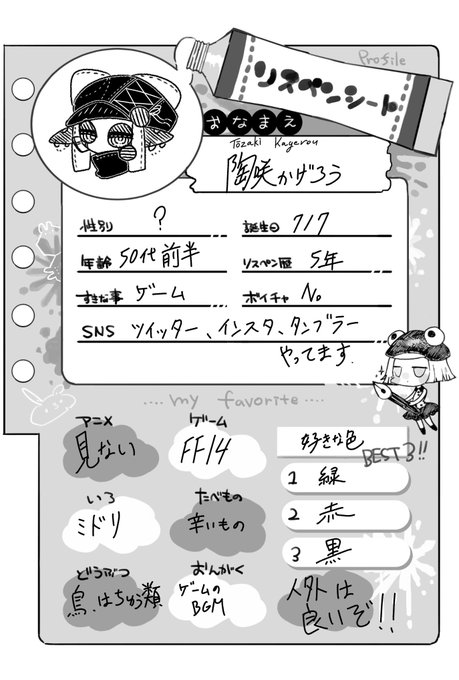 Profile
リスペンシート
おなまえ
Tozaki Kagerou
陶咲かげろう
性別 ?
誕生日 7/7
年齢 50代前半
リスペン歴 5年
すきな事 ゲーム
ボイチャ No
SNS ツイッター、インスタ、タンブラー
やってます.
....my favorite....
アニメ
見ない
ゲーム
FF14
好きな色
BEST3!!
1 緑
2 赤
3 黒
いろ
ミドリ
たべもの
辛いもの
どうぶつ
鳥、はちゅう類
おんがく
ゲームの
BGM
人外は
良いぞ!!